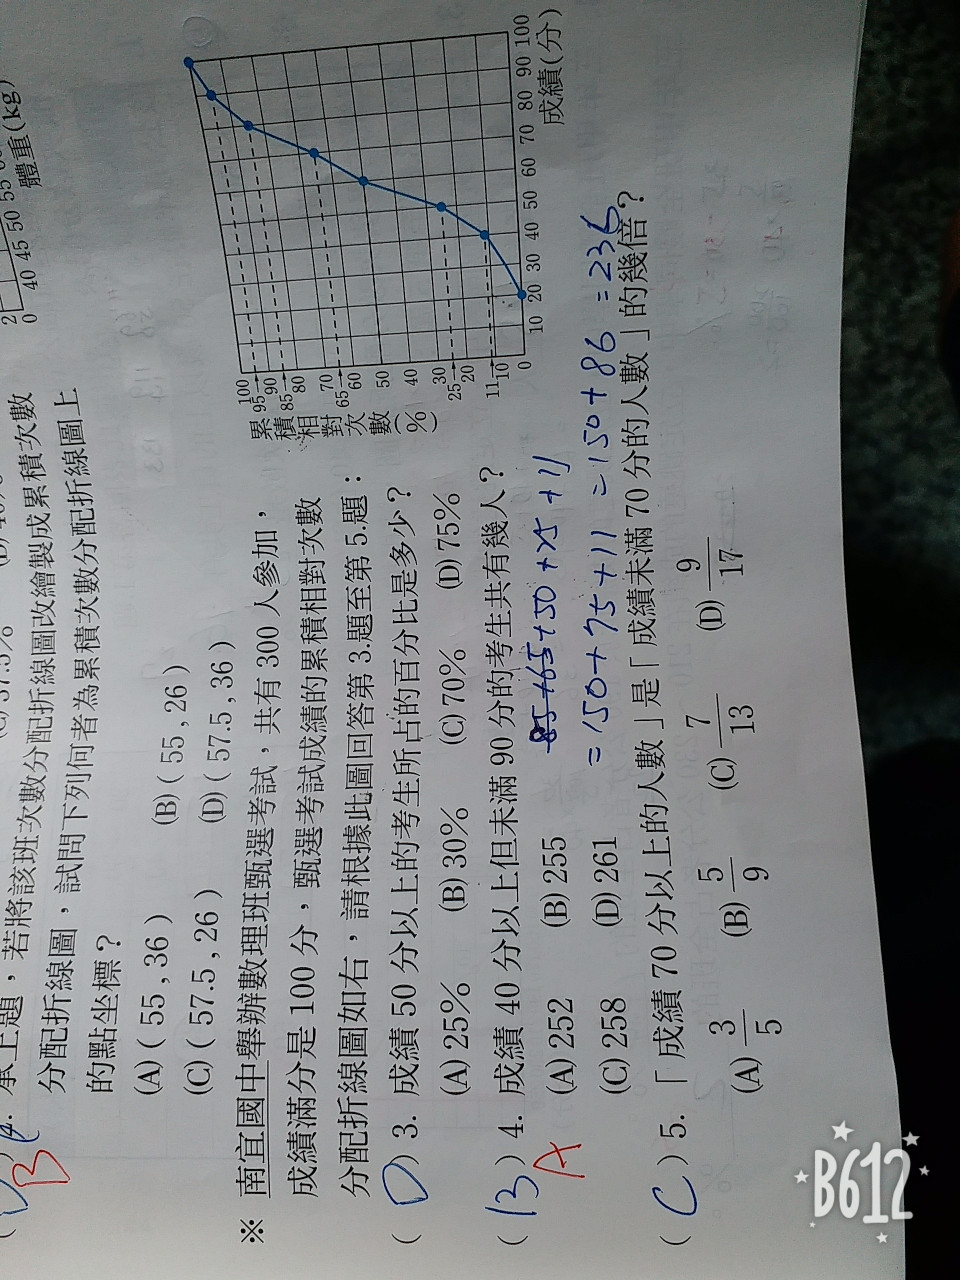 2
0 40 45 50 55
體重(kg)
承上題，若將該班次數分配折線圖改繪製成累積次數
分配折線圖，試問下列何者為累積次數分配折線圖上
的點坐標？
B
(A)(55,36) (B)(55,26)
(C)(57.5,26) (D)(57.5,36)
※ 南宜國中舉辦數理班甄選考試，共有300人參加，
成績滿分是100分，甄選考試成績的累積相對次數
分配折線圖如右，請根據此圖回答第3.題至第5.題：
累積相對次數(%)
100
95
90
85
80
70
65
60
50
40
30
25
20
11
10
0
10 20 30 40 50 60 70 80 90 100
成績(分)
( D ) 3. 成績50分以上的考生所占的百分比是多少？
(A)25% (B)30% (C)70% (D)75%
( B ) 4. 成績40分以上但未滿90分的考生共有幾人？
A
(A)252 (B)255
(C)258 (D)261
85+65+50+25+11
=150+75+11=150+86=236
( C ) 5. 「成績70分以上的人數」是「成績未滿70分的人數」的幾倍？
(A) 3/5 (B) 5/9 (C) 7/13 (D) 9/17
B612